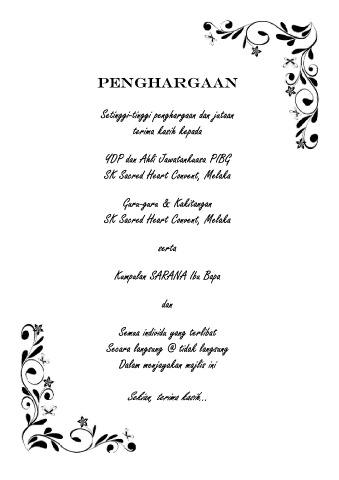 PENGHARGAAN
Setinggi-tinggi penghargaan dan jutaan
terima kasih kepada
YDP dan Ahli Jawatankuasa PIBG
SK Sacred Heart Convent, Melaka
Guru-guru & Kakitangan
SK Sacred Heart Convent, Melaka
serta
Kumpulan SARANA Ibu Bapa
dan
Semua individu yang terlibat
Secara langsung @ tidak langsung
Dalam menjayakan majlis ini
Sekian, terima kasih..